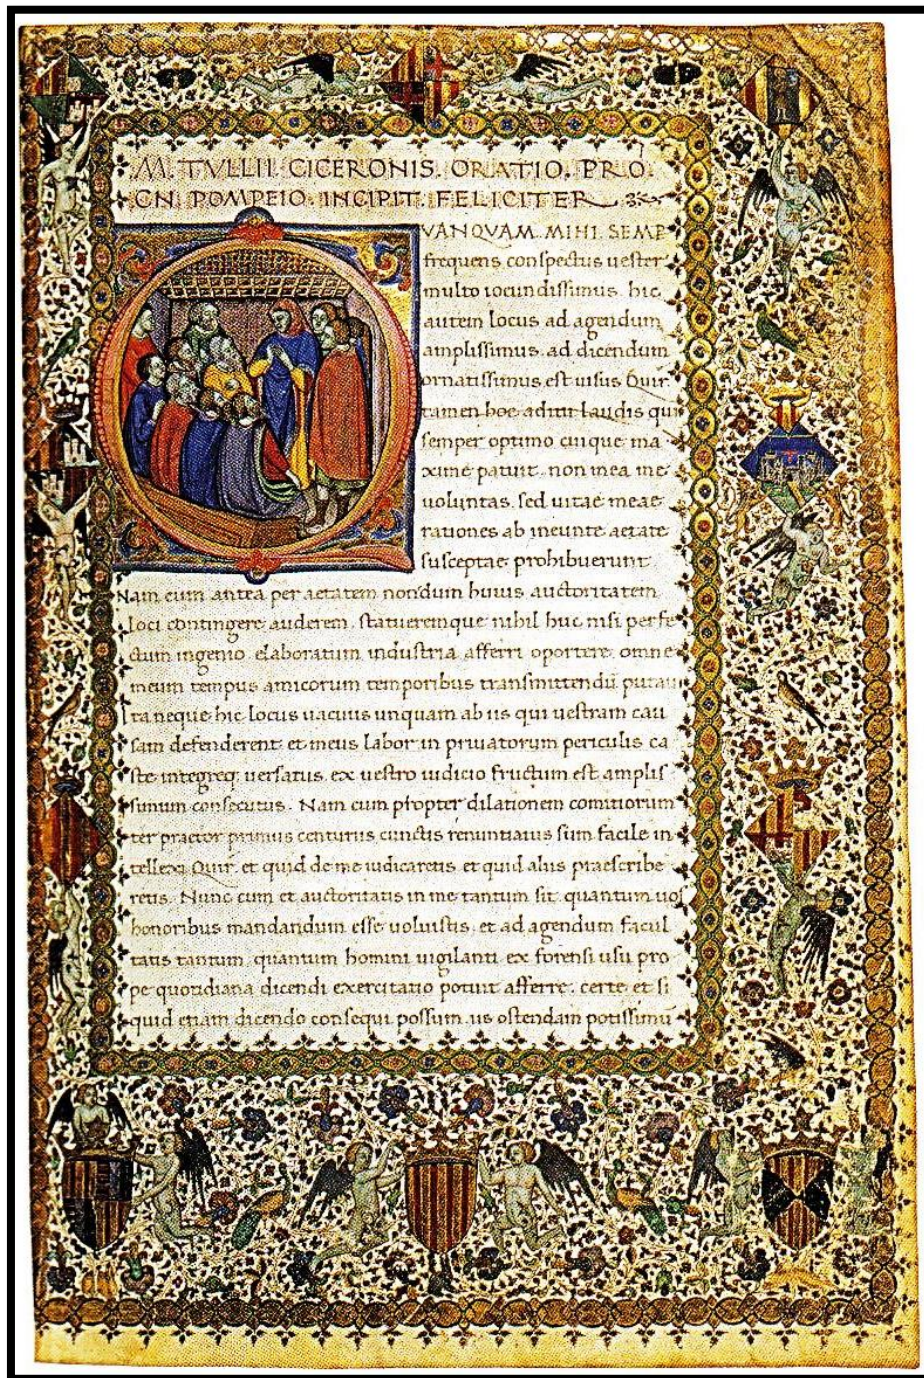 M. TVLLII. CICERONIS. ORATIO. PRO.
CN. POMPEIO. INCIPIT. FELICITER
QVANQVAM. MIHI. SEMP
frequens conspectus uester
multo iocundissimus. hic
autem locus ad agendum
amplissimus. ad dicendum
ornatissimus est uisus Quir.
tamen hoc aditu laudis qui
semper optimo cuique ma
xime patuit. non mea me
voluntas. sed uitae meae
rationes ab ineunte aetate
susceptae prohibuerunt
Nam cum antea per aetatem nondum huius auctoritatem
loci contingere auderem. statueremque nihil huc nisi perfe
ctum ingenio elaboratum industria afferri oportere. omne
meum tempus amicorum temporibus transmittendū putaui
Ita neque hic locus uacuus unquam ab iis qui uestram cau
sam defenderent et meus labor in priuatorum periculis ca
ste integreq; uersatus. ex uestro iudicio fructum est amplis
simum consecutus. Nam cum propter dilationem comitiorum
ter praetor primus centuriis cunctis renuntiatus sim facile in
tellexi Quir. et quid de me iudicaretis. et quid aliis praescribe
retis. Nunc cum et auctoritatis in me tantum sit. quantum uos
honoribus mandandum esse uoluistis. et ad agendum facul
tatis tantum. quantum homini uigilanti ex forensi usu pro
pe quotidiana dicendi exercitatio potuit afferre. certe et si
quid etiam dicendo consequi possum. iis ostendam potissimū